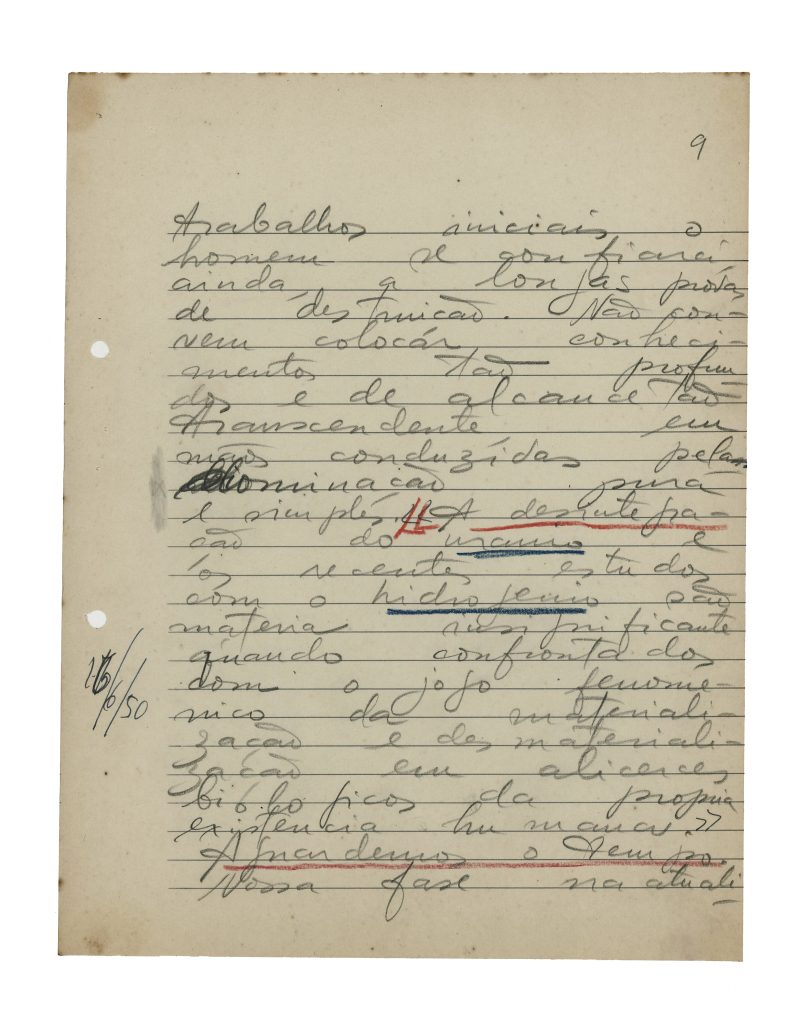 9
trabalhos iniciais o
homem se confiará
ainda, a longas próvas
de destruicão. Não con-
vem colocár conheci-
mentos tão profun
dos e de alcance tão
transcendente em
mãos conduzidas pela
dominacão purá
e simplés. A desintegra-
cão do uranio e
os recentes estudos
com o hidrogenio são
materia insignificante
quando confrontados
com o jogo fenomê-
nico da materiali-
zacão e desmateriali-
zacão em alicerces
biólogicos da propria
existencia humana.»
Aguardemos o tempo.
Nossa fase na atuali-
16/6/50